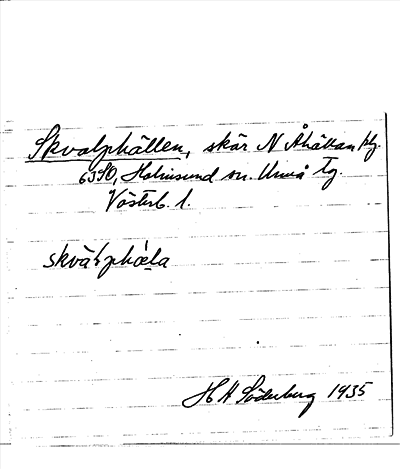 Skvalphällen, skär N Åhällan, kbg.
63SO, Holmsund sn. Umeå tg.
Västerb. l.
H A Söderberg 1935